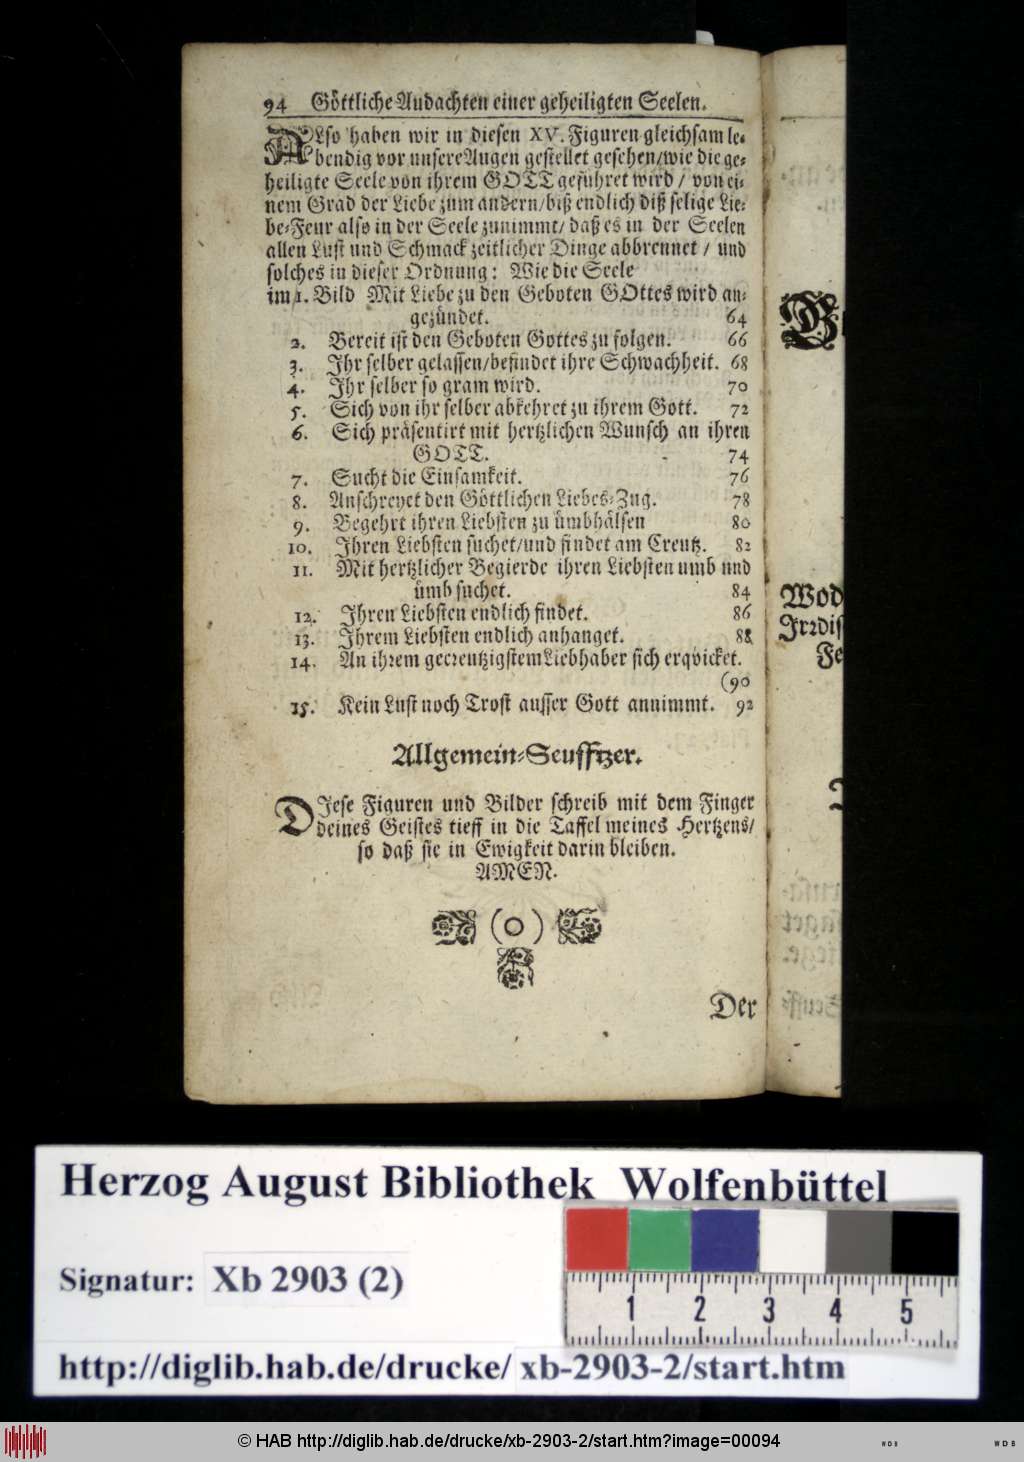 94 Göttliche Andachten einer geheiligten Seelen.
ALso haben wir in diesen XV. Figuren gleichsam le-
bendig vor unsere Augen gestellet gesehen/wie die ge-
heiligte Seele von ihrem GOTT geführet wird / von ei-
nem Grad der Liebe zum andern/biß endlich diß selige Lie-
be-Feur also in der Seele zunimmt/ daß es in der Seelen
allen Lust und Schmack zeitlicher Dinge abbrennet / und
solches in dieser Ordnung: Wie die Seele
im 1. Bild Mit Liebe zu den Geboten GOttes wird an-
gezündet. 64
2. Bereit ist den Geboten Gottes zu folgen. 66
3. Ihr selber gelassen/befindet ihre Schwachheit. 68
4. Ihr selber so gram wird. 70
5. Sich von ihr selber abkehret zu ihrem Gott. 72
6. Sich präsentirt mit hertzlichen Wunsch an ihren
GOTT. 74
7. Sucht die Einsamkeit. 76
8. Anschreyet den Göttlichen Liebes-Zug. 78
9. Begehrt ihren Liebsten zu ümbhälsen 80
10. Ihren Liebsten suchet/und findet am Creutz. 82
11. Mit hertzlicher Begierde ihren Liebsten umb und
ümb suchet. 84
12. Ihren Liebsten endlich findet. 86
13. Ihrem Liebsten endlich anhanget. 88
14. An ihrem gecreutzigstem Liebhaber sich erqvicket.
(90
15. Kein Lust noch Trost ausser Gott annimmt. 92
Allgemein-Seufftzer.
DIese Figuren und Bilder schreib mit dem Finger
deines Geistes tieff in die Taffel meines Hertzens/
so daß sie in Ewigkeit darin bleiben.
AMEN.
(O)
Der
Wod
Irrdis
Fe
Herzog August Bibliothek Wolfenbüttel
Signatur: Xb 2903 (2)
1 2 3 4 5
http://diglib.hab.de/drucke/ xb-2903-2/start.htm
© HAB http://diglib.hab.de/drucke/xb-2903-2/start.htm?image=00094
WDB WDB